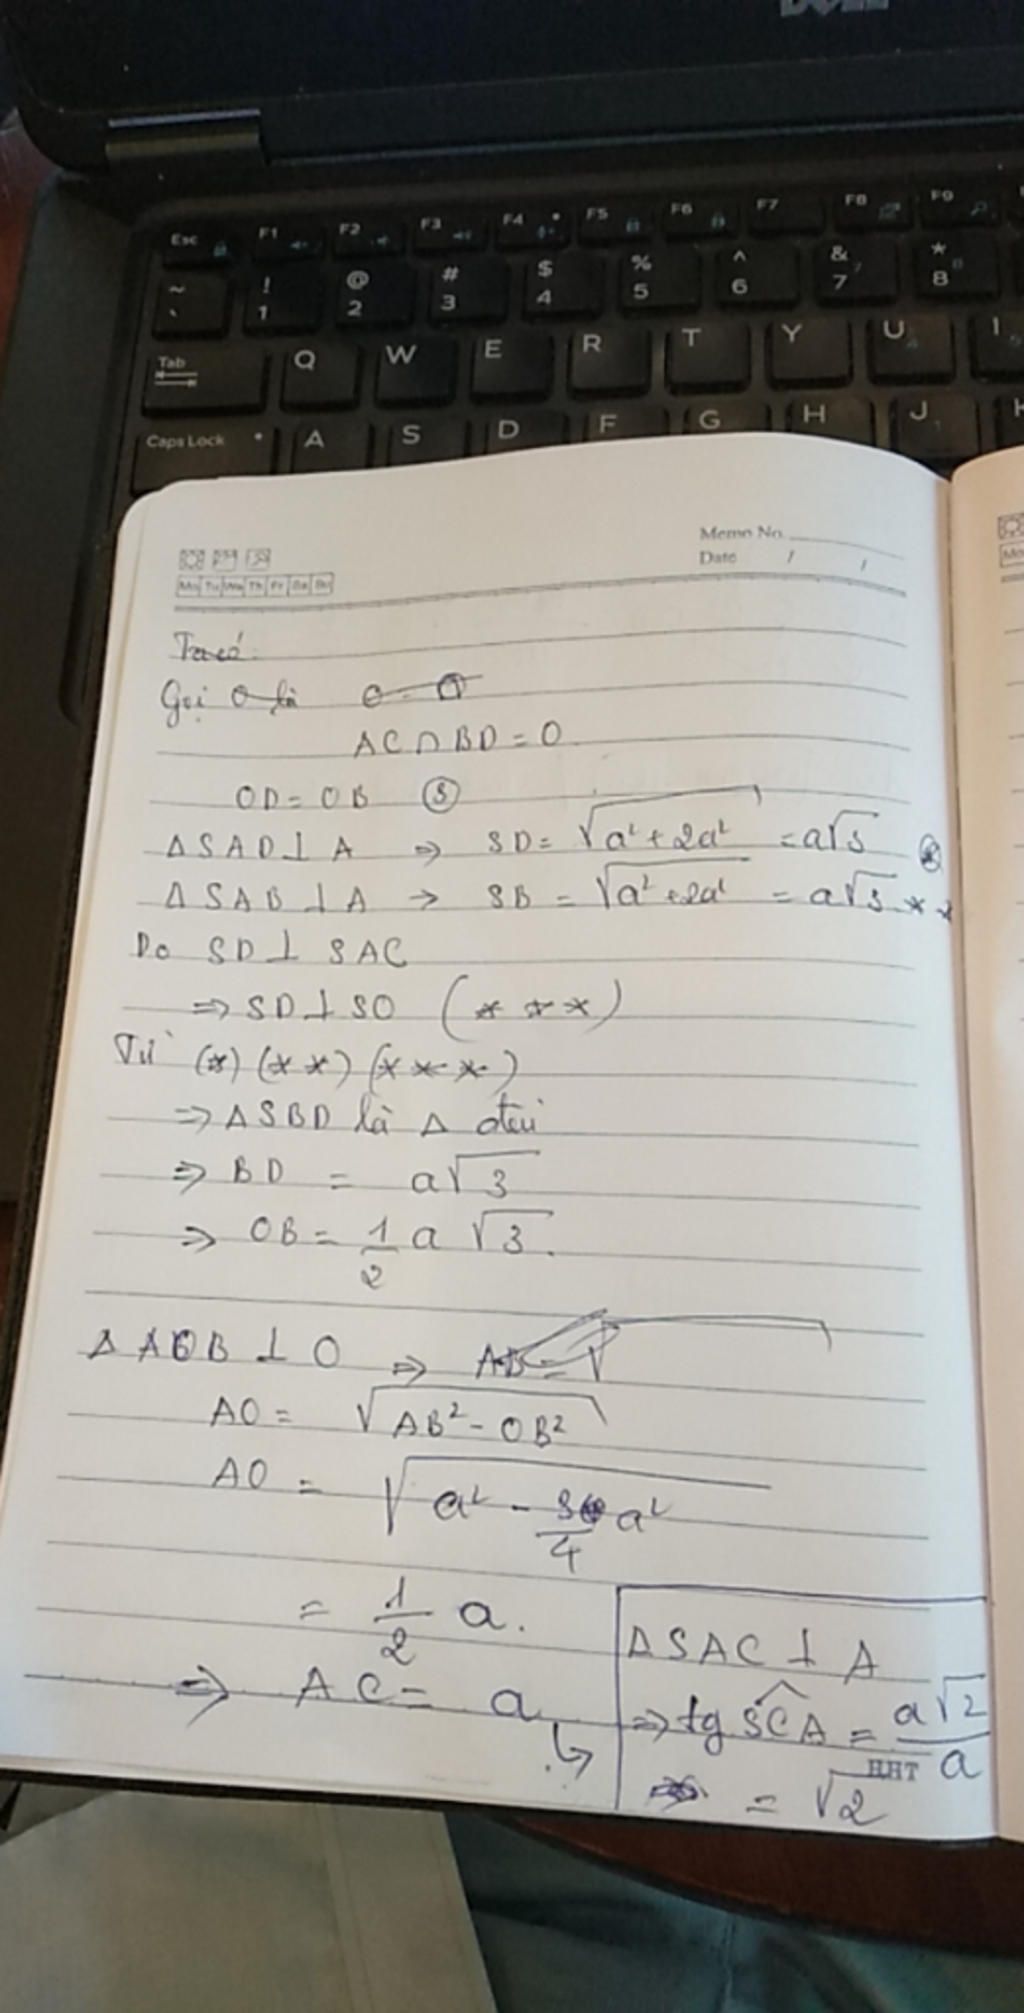 DELL
Esc F1 F2 F3 F4 F5 F6 F7 F8 F9
~ ` ! 1 @ 2 # 3 $ 4 % 5 ^ 6 & 7 * 8
Tab Q W E R T Y U I
Caps Lock A S D F G H J
Memo No.
Date / /
Mo Tu We Th Fr Sa Su
Ta có:
Gọi O là
AC ∩ BD = O
OD = OB
Δ SAD ⊥ A ⇒ SD = √(a² + 2a²) = a√3
Δ SAB ⊥ A → SB = √(a² + 2a²) = a√3 **
Do SD ⊥ SAC
⇒ SD ⊥ SO (***)
Từ (*) (**) (***)
⇒ Δ SBD là Δ đều
⇒ BD = a√3
⇒ OB = 1/2 a√3.
Δ AOB ⊥ O ⇒ AB = √
AO = √(AB² - OB²)
AO = √(a² - 3/4 a²)
= 1/2 a.
⇒ AC = a
Δ SAC ⊥ A
⇒ tg SCA = a√2/a
= √2
HHT